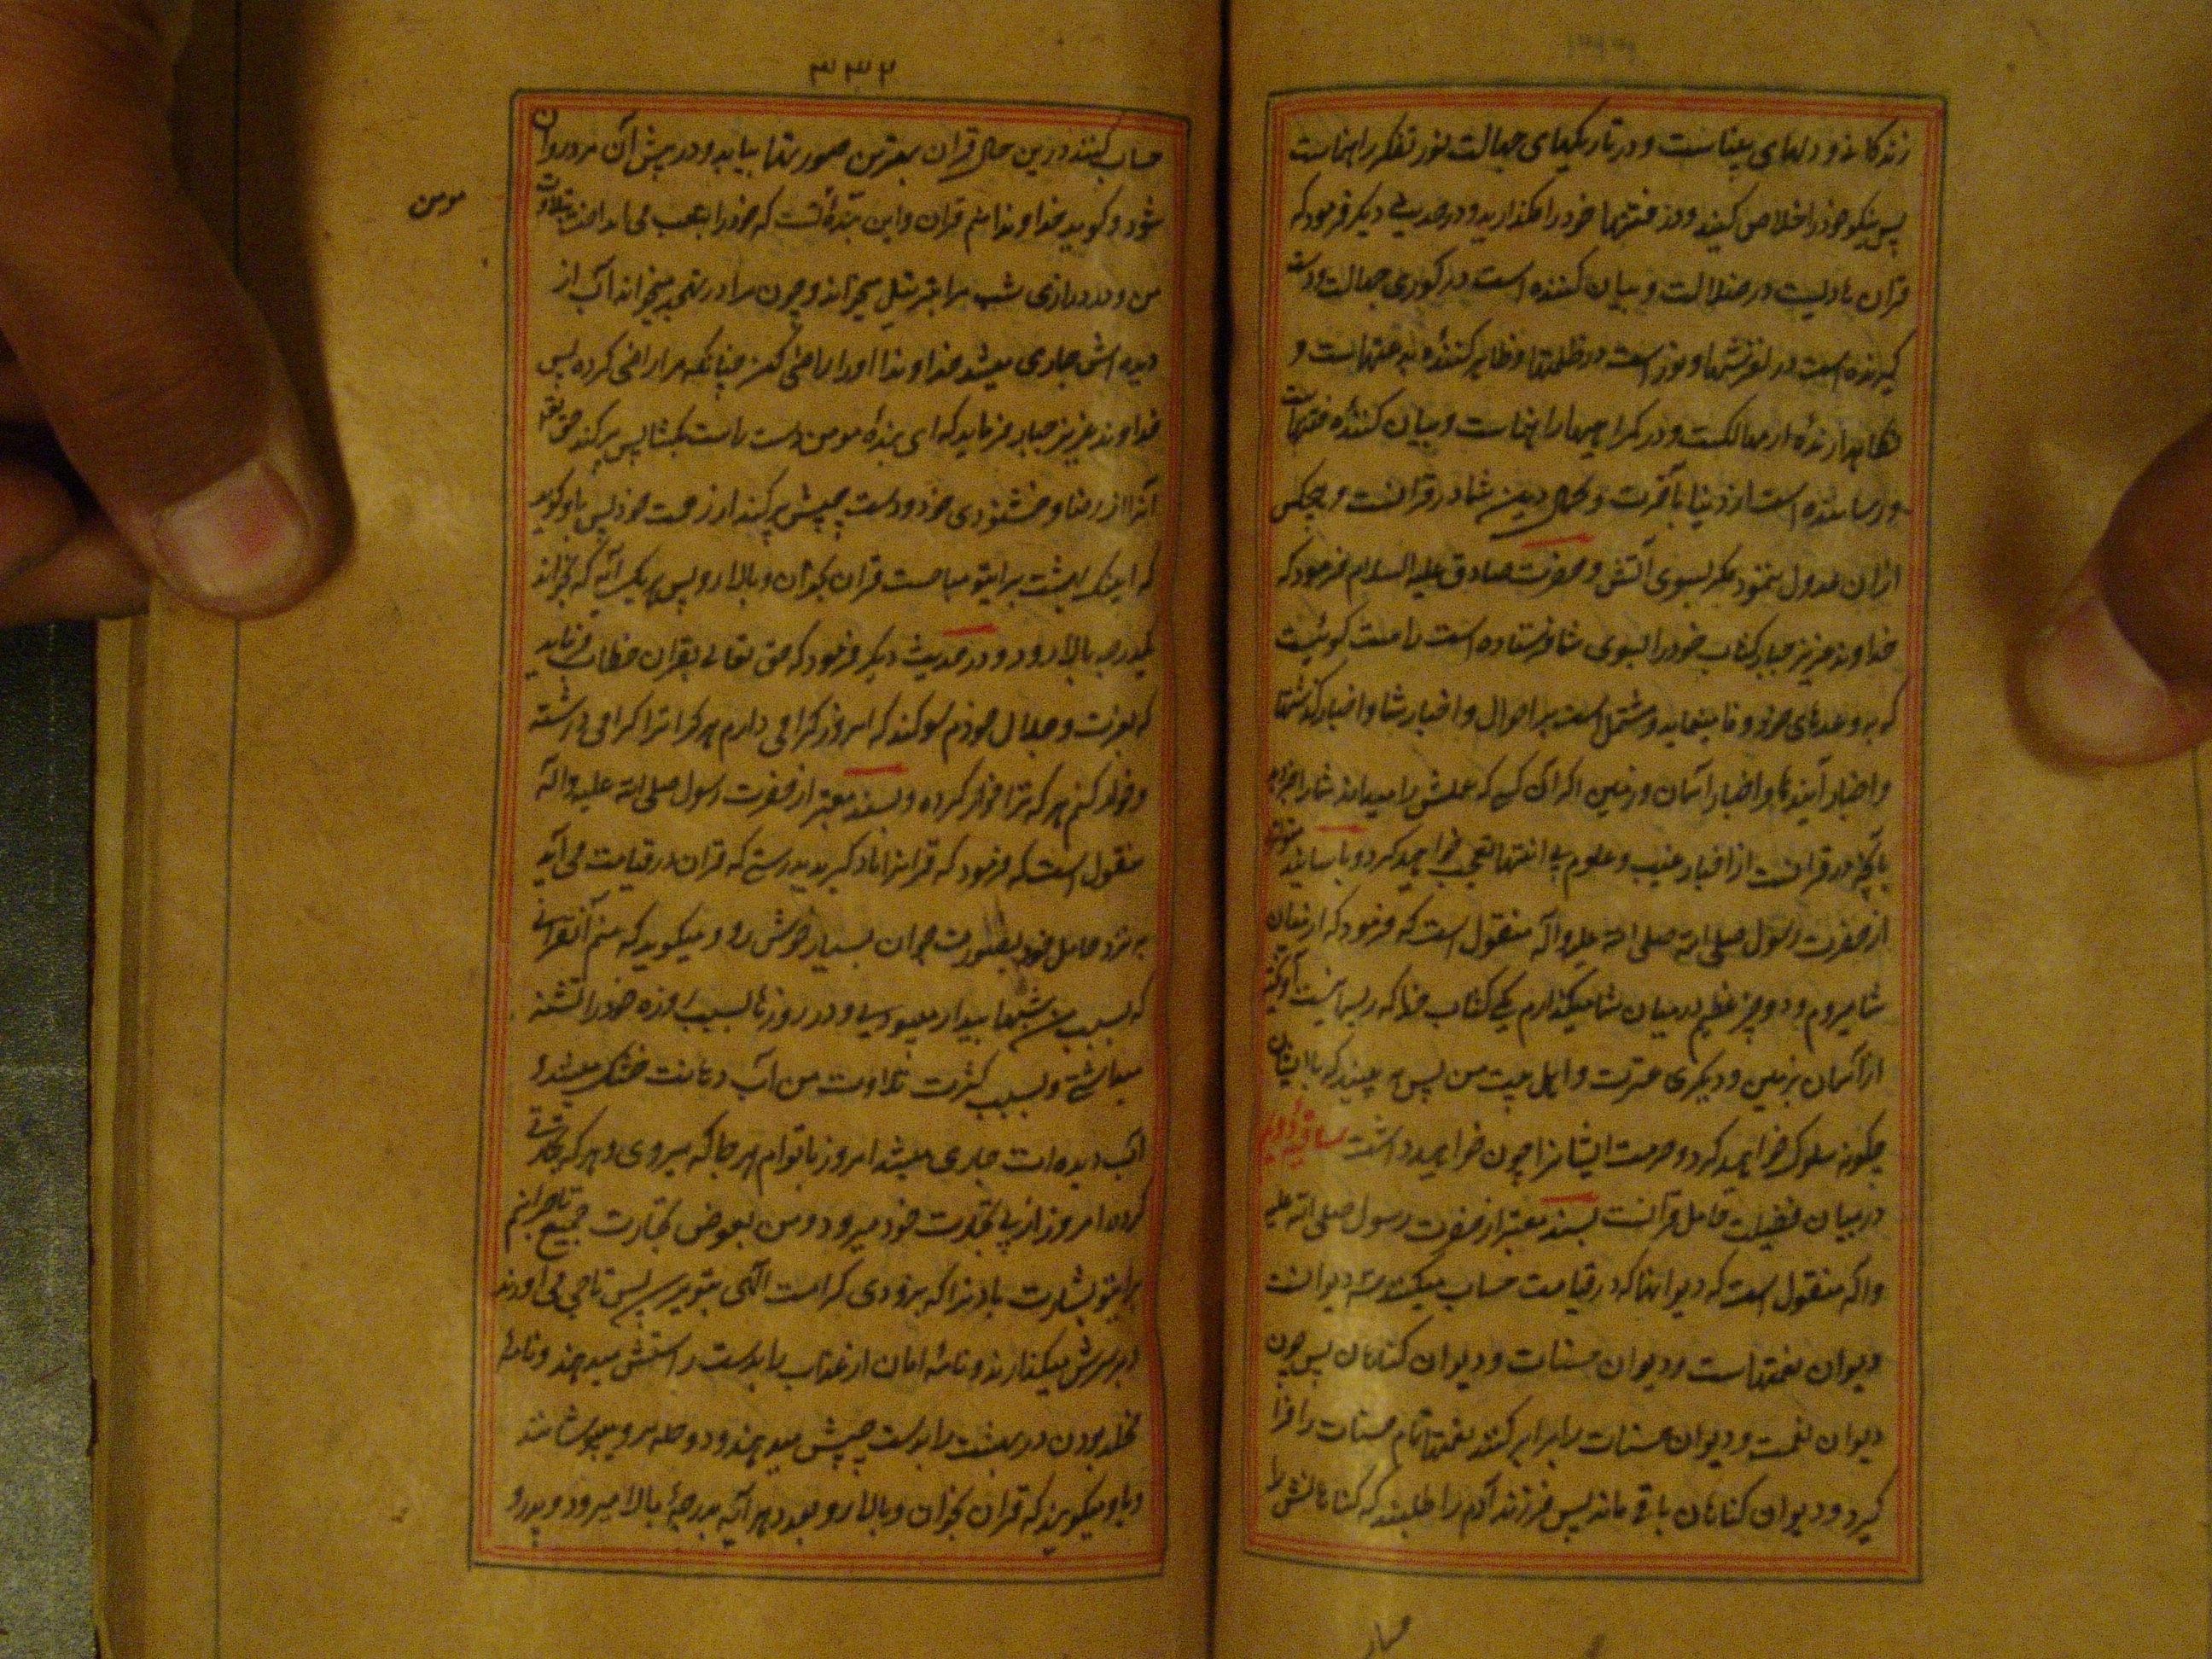 زندکانی و دلهای بیناست و در تاریکیهای جهالت نور تفکر راهنماست
پس نیکو خود را خلاص کنید و در فتنها خود را مکذارید و در حدیثی دیکر فرمود که
قران هادیست در ضلالت و بیان کننده است در کوری جهالت و دست
کیرنده است در لغزشها و نور است در ظلمتها و ظاهر کننده بدعتهاست و
نکاهدارنده از مهالکست و در کمراهیها راهنماست و بیان کننده فتنهاست
و رساننده است از دنیا بآخرت و کمال دین شما در قرانست و هیچکس
ازان عدول ننمود مکر بسوی آتش و حضرت صادق علیه السلام فرمود که
خداوند عزیز جبار کتاب خود را بسوی شما فرستاده است راست کوئیست
که بوعدهای خود وفا مینماید و مشتمل است بر احوال و اخبار شما و اخبار کذشتها
و اخبار آیندها و اخبار آسمان و زمین اکر آن کسی که علمش را میداند شما را خبر دهد
بآنچه در قرانست از اخبار غیب و علوم بی انتها تعجب خواهید کرد و باسانید متواتره
از حضرت رسول صلی الله صلی الله علیه و آله منقول است که فرمود که از میان
شما میروم و دو چیز عظیم در میان شما میکذارم یکی کتاب خدا که ریسمانیست آویخته
از آسمان بزمین و دیکری عترت و اهل بیت من پس به بینید که با ایشان
چکونه سلوک خواهید کرد و حرمت ایشانرا چون خواهید داشت ساقیه دویم
در بیان فضیلت حامل قرآنست بسند معتبر از حضرت رسول صلی الله علیه
و اله منقول است که دیوانها که در قیامت حساب میکنند سه دیوانست
دیوان نعمتهاست و دیوان حسنات و دیوان کناهان پس چون
دیوان نعمت و دیوان حسنات را برابر کنند نعمتها تمام حسنات را فرا
کیرد و دیوان کناهان باقی ماند پس فرزند آدم را طلبند که کناهانش را
حساب
۳۳۲
حساب کنند درین حال قران بهترین صورتها بیاید و در پیش آن مرد روان
شود و کوید خداوندا منم قران و این بندهٔ تست که خود را بتعب می انداخت بتلاوت
من و در درازی شب مرا بترتیل میخواند و چون مرا در تهجد میخواند آب از
دیده اش جاری میشد خداوندا او را راضی کن چنانکه مرا راضی کرده پس
خداوند عزیز جبار فرماید که ای بندهٔ مومن دست راست بکشا پس پر کند حق تعالی
آنرا از رضا و خشنودی خود و دست چپش پر کند از رحمت خود پس باو کوید
که اینک بهشت برایتو مباحست قران بخوان و بالا رو پس بهر یک آیه که بخواند
یکدرجه بالا رود و در حدیث دیکر فرمود که حق تعالی بقران خطاب فرماید
که بعزت و جلال خودم سوکند که امروز کرامی دارم هر که ترا کرامی داشته
و خوار کنم هر که ترا خوار کرده و بسند معتبر از حضرت رسول صلی الله علیه و اله
منقول است که فرمود که قرانرا یاد کیرید بدرستی که قران در قیامت می آید
به نزد حامل خود بصورت جوان بسیار خوش رو و میکوید که منم آن قرانی
که بسبب من شبها بیدار میبودی و در روزها بسبب روزه خود را تشنه
میداشتی و بسبب کثرت تلاوت من آب دهانت خشک میشد
آب دیده ات جاری میشد امروز با توام هر جا که میروی و هر که تجارتی
کرده امروز از پی تجارت خود میرود و من بعوض تجارت جمیع تاجرانم
برایتو بشارت باد ترا که بزودی کرامت الهی بتو میرسد پس تاجی می آورند
و بر سرش میکذارند و نامهٔ امان از عذاب را بدست راستش میدهند و نامهٔ
مخلد بودن در بهشت را بدست چپش میدهند و دو حله برو میپوشانند
و باو میکویند که قران بخوان و بالا رو بعدد هر آیه بدرجهٔ بالا میرود و پدر و
مومن